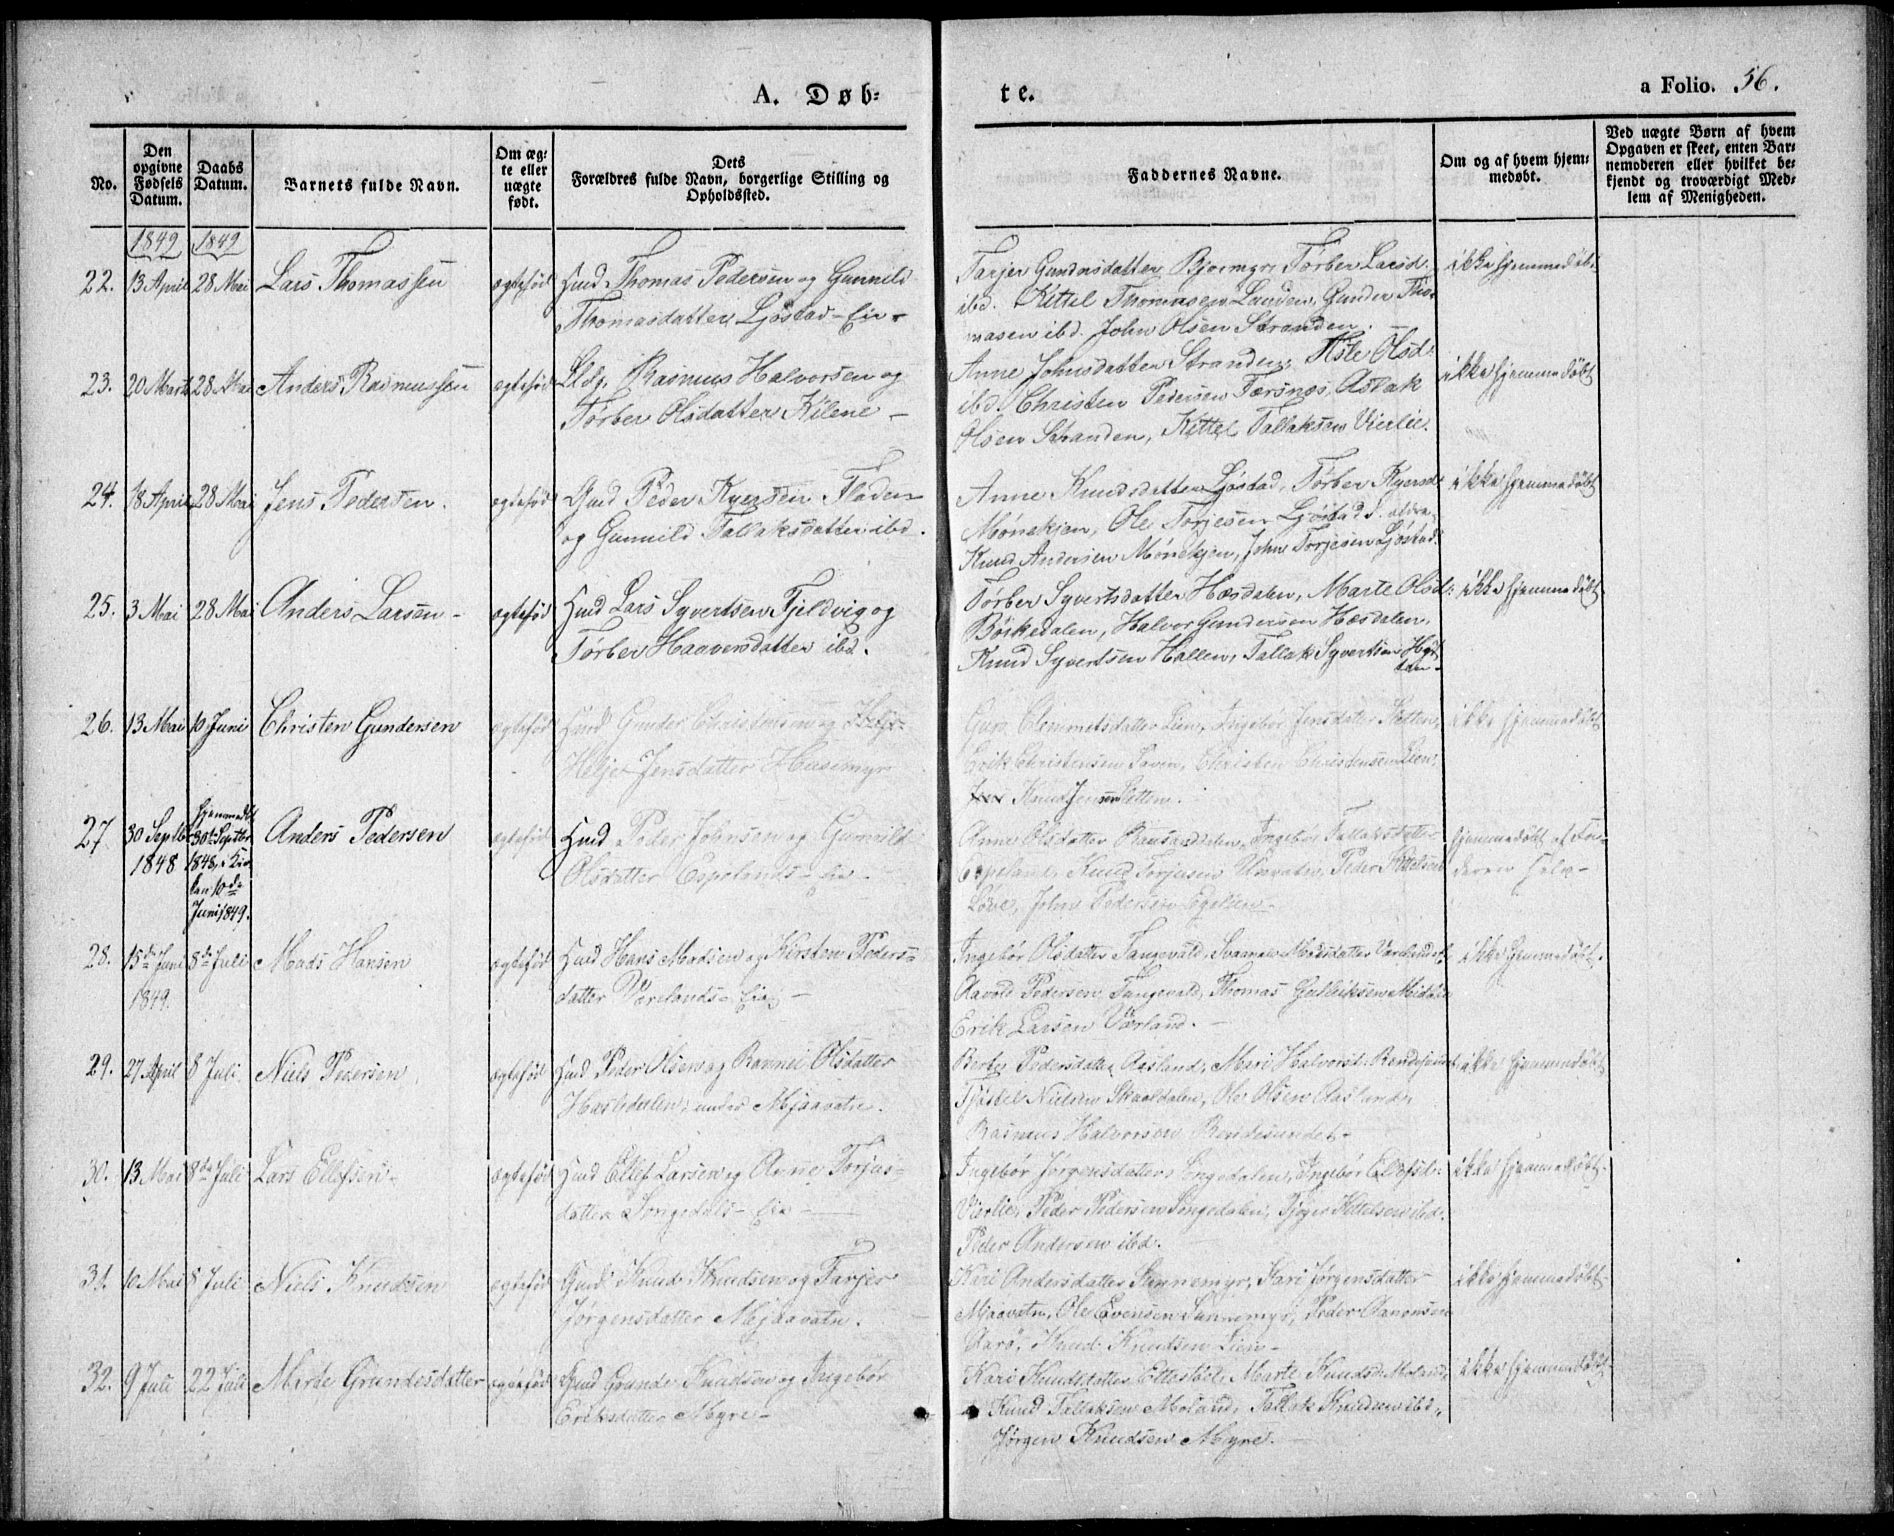 A. Døb=
te.
a Folio. 56.
No.
Den opgivne Fødsels Datum.
Daabs Datum.
Barnets fulde Navn.
Om æg= te eller uægte født.
Dets Forældres fulde Navn, borgerlige Stilling og Opholdssted.
Faddernes Navne.
Om og af hvem hjem= medøbt.
Ved uægte Børn af hvem Opgaven er skeet, enten Bar= nemoderen eller hvilket be= kjendt og troværdigt Med= lem af Menigheden.
1849 1849
22. 13 April 28 Mai Lars Thomassen ægtefød Huusd Thomas Pedersen og Gunnild
Thomasdatter Ljøstad-Eie-
Tarjer Gundersdatter Bjormyr, Tørber Larsd.
ibd. Kittel Thomasen Landen, Gunder Tho-
masen ibd. John Olsen Stranden.
ikke hjemmedøbt
23. 20 Marts 28 Mai Anders Rasmussen ægtefød Rasmus Halvorsen og
Tørber Olsdatter Kilene -
Anne Johnsdatter Stranden, Asle Olsd.
ibd. Christen Pedersen Færsnes, Aslak
Olsen Stranden, Kittel Tallaksen Vierlie.
ikke hjemmedøbt
24. 18 April 28 Mai Jens Pedersen. ægtefød Gmd Peder Kyersen Fladen
og Gunnild Tallaksdatter ibd.
Anne Knudsdatter Ljøstad, Tørber Kyersd:
Mønekjen, Ole Torjesen Ljøstad
Knud Andersen Mønekjen, John Torjesen Ljøstad.
ikke hjemmedøbt
25. 3 Mai 28 Mai Anders Larsen - ægtefød Hmd Lars Syvertsen Fjeldvig og
Tørber Haaversdatter ibd.
Tørber Syvertsdatter Hæsdalen, Marte Olsd:
Bøikedalen, Halvor Gundersen Hæsdalen,
Knud Syvertsen Hallen, Tallak Syvertsen
ikke hjemmedøbt
26. 13 Mai 10 Juni Christen Gundersen ægtefød Hmd Gunder Christensen og
Helje Jensdatter Husemyr
Gun. Clemmetsdatter Lien, Ingebør Jensdatter Sletten,
Erik Christensen Lien, Christen Christensen Lien,
Knud Jensen Sletten.
ikke hjemmedøbt
27. 30 Septbr 1848 Hjemmedt 30te Septbr 1848, i Kir ken 10de Juni 1849. Anders Pedersen ægtefød Hmd Peder Johnsen og Gunnild
Olsdatter Espelands-Eie-
Anne Olsdatter Ingebør Tallaksdatter
Espeland, Knud Torjusen Peder Kittelsen
Løve, John Pedersen Egelien-
hjemmedøbt af Fa-
deren selv-
28. 15de Juni 1849. 8de Juli Mads Hansen ægtefød Hmd Hans Madsen og Kirsten Peders-
datter Værelands-Eie -
Ingebør Olsdatter Tangevald, Svanaug Madsdatter
Aavold Pedersen Tangevald, Thomas
Erik Larsen Værland.
ikke hjemmedøbt.
29. 27 April 8 Juli. Niels Pedersen ægtefød Hmd Peder Olsen og Ravnei Olsdatter
Hasledalen, under Mjaavatn.
Berte Pedersdatter Aasland, Mari Halvorsd.
Tjøstel Nielsen Skaaldalen, Ole Olsen Aasland,
Rasmus Halvorsen Rendesundet-
ikke hjemmedøbt
30. 13 Mai 8de Juli Lars Ellefsen- ægtefød Hmd Ellef Larsen og Anne Torjus-
datter Songedals-Eie -
Ingebør Jørgensdatter Songedalen, Ingebør Ellefsd:
Vierlie, Peder Pedersen Songedalen, Tjøger Kittelsen ibd.
Peder Andersen ibd.
ikke hjemmedøbt
31. 10 Mai 8 Juli Niels Knudsen ægtefød Gmd Knud Knudsen og Tarjer
Jørgensdatter Mjaavatn.
Kari Andersdatter Kari Jørgensdatter
Mjaavatn, Ole Evensen Peder Aanonsen
Knud Knudsen Lien-
ikke hjemmedøbt
32. 9 Juli 22 Juli Marte Gundersdatter ægtefød Gmd Gunder Knudsen og Ingebør
Eriksdatter Myre-
Kari Knudsdatter Ettestøl, Marte Knudsd: Moland,
Knud Tallaksen Moland, Tallak Knudsen ibd.,
Jørgen Knudsen Myre.
ikke hjemmedøbt